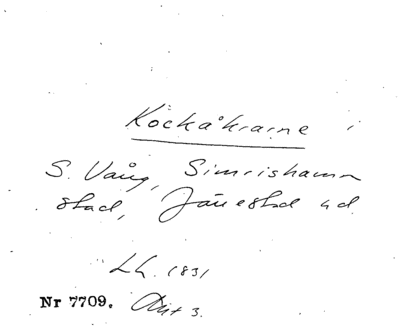 Kockåkrarne i
S. Vång, Simrishamn
stad, Järrestad hd
Lh. 1831
Nr 7709. Akt 3.